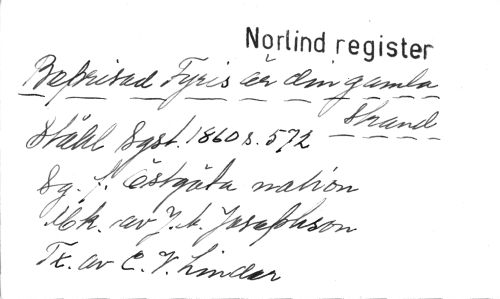 Norlind register
Befrisad Fyris är din gamla
strand
Ståhl Sgst. 1860 s. 572
Sg. f. Östgöta nation
Mk. av J. A. Josephson
Tx. av C. V. Linder